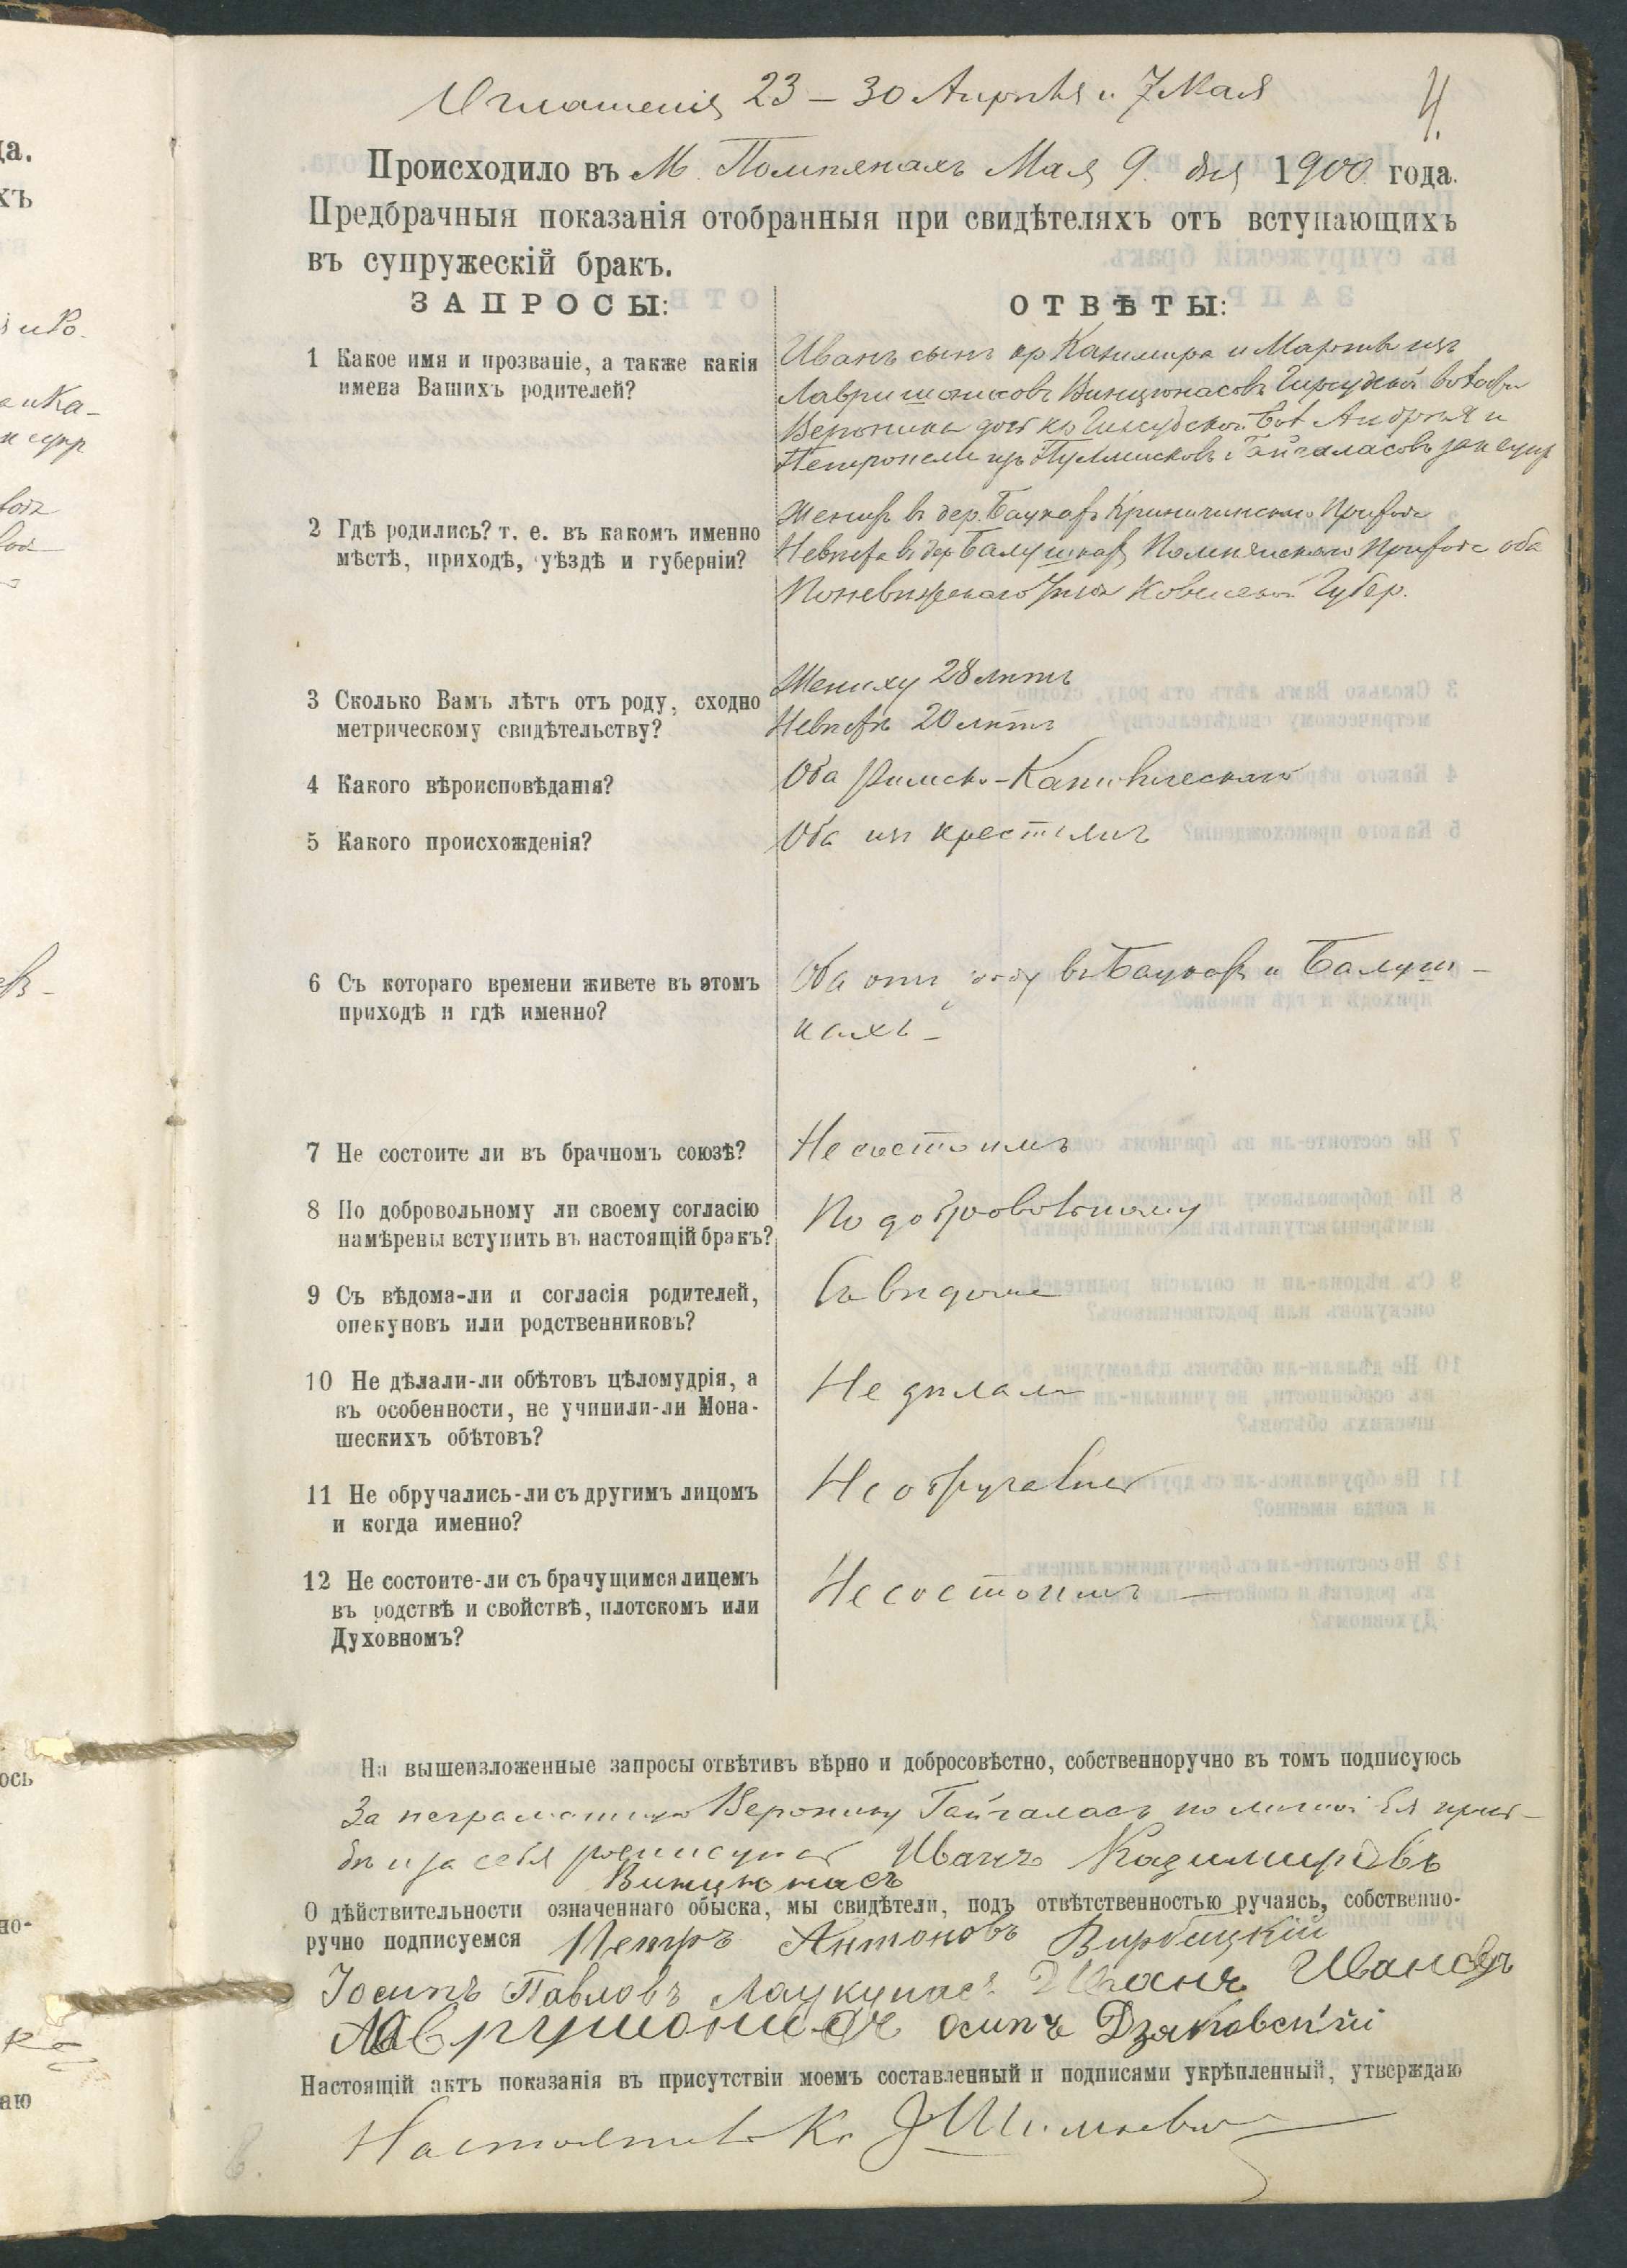 Оглашенія 23 – 30 Апрѣля и 7 Мая
4.
Происходило въ М. Помпянахъ Мая 9. дня 1900 года.
Предбрачныя показанія отобранныя при свидѣтеляхъ отъ вступающихъ
въ супружескій бракъ.
ЗАПРОСЫ:
ОТВѢТЫ:
1 Какое имя и прозваніе, а также какія
имена Вашихъ родителей?
Иванъ сынъ кр Казимира и Марты изъ
Винцюнасовъ
Вероника Андрея и
Петронели изъ Гайгаласовъ зак супр
2 Гдѣ родились? т. е. въ какомъ именно
мѣстѣ, приходѣ, уѣздѣ и губерніи?
Женихъ въ дер. Баукахъ Криничинскаго Прихода
Невѣста въ дер Балушкахъ Помпянскаго Прихода оба
Поневѣжскаго уѣзда Ковенской Губер.
3 Сколько Вамъ лѣтъ отъ роду, сходно
метрическому свидѣтельству?
Жениху 28 лѣтъ
Невѣстѣ 20 лѣтъ
4 Какого вѣроисповѣданія?
Оба Римско-Католическаго
5 Какого происхожденія?
Оба изъ крестьянъ
6 Съ котораго времени живете въ этомъ
приходѣ и гдѣ именно?
Оба отъ роду въ Баукахъ и Балуш-
кахъ –
7 Не состоите ли въ брачномъ союзѣ?
Не состоимъ
8 По добровольному ли своему согласію
намѣрены вступить въ настоящій бракъ?
По добровольному
9 Съ вѣдома-ли и согласія родителей,
опекуновъ или родственниковъ?
Съ вѣдома
10 Не дѣлали-ли обѣтовъ цѣломудрія, а
въ особенности, не учинили-ли Мона-
шескихъ обѣтовъ?
Не дѣлали
11 Не обручались-ли съ другимъ лицомъ
и когда именно?
Не обручались
12 Не состоите-ли съ брачущимся лицемъ
въ родствѣ и свойствѣ, плотскомъ или
Духовномъ?
Не состоимъ –
На вышеизложенные запросы отвѣтивъ вѣрно и добросовѣстно, собственноручно въ томъ подписуюсь
За неграмотную Веронику Гайгаласъ по личной Ея прось-
бѣ и за себя росписуюсь Иванъ Казимировъ
Винцюнасъ
О дѣйствительности означеннаго обыска, мы свидѣтели, подъ отвѣтственностью ручаясь, собственно-
ручно подписуемся Петръ Антоновъ Вирбицкій
Іосипъ Павловъ Лаукупасъ Иванъ Ивановъ
Осипъ Дзяковскій
Настоящій актъ показанія въ присутствіи моемъ составленный и подписями укрѣпленный, утверждаю
Настоятель Кс